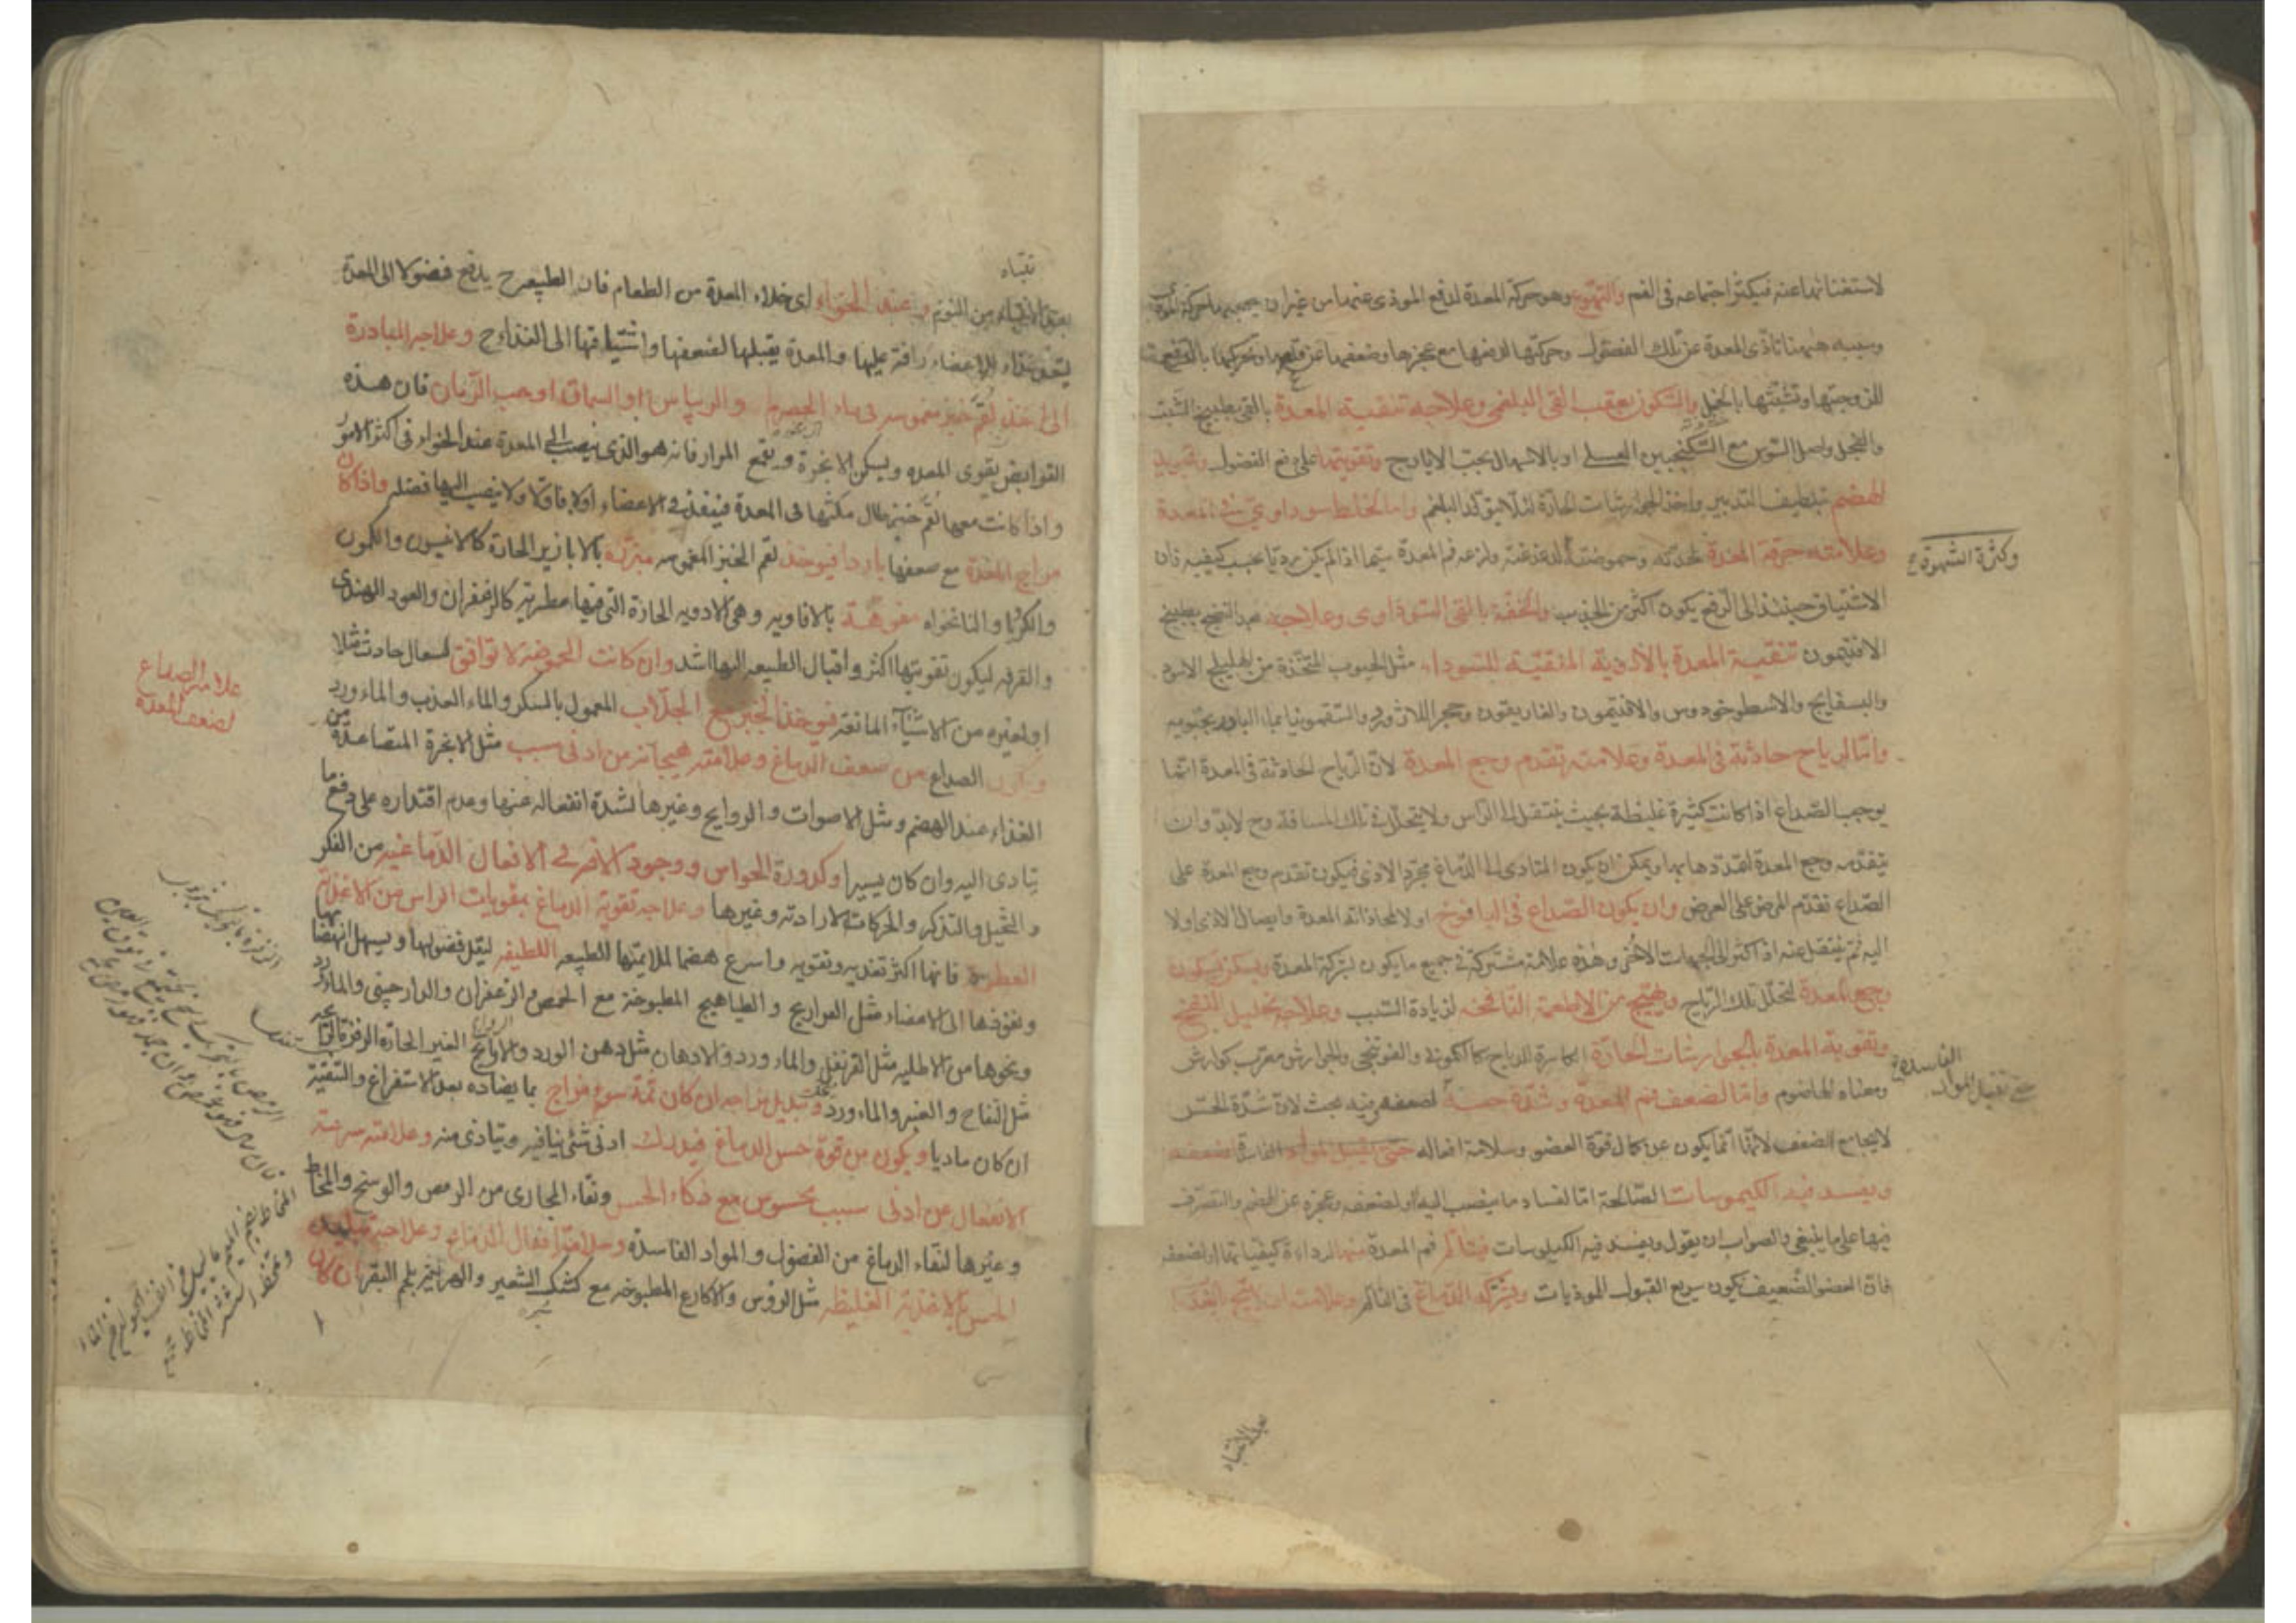 لاستغنائها عنه فيكثر اجتماعه في الفم والتهوع وهو حركة المعدة لدفع الموذى عنها من غير ان يصحبها حركة
وسببه ههنا تاذى المعدة عن تلك الفضول وحركتها لدفعها مع عجزها وضعفها عن
للزوجتها وتشبثها بالخمل والسكون بعقب القى البلغمى وعلاجه تنقية المعدة بالقى بطبيخ الشبت
والفجل واصل السوس مع السكنجبين العسلى او بالاسهال بحب الايارج وتقويتها على دفع الفضول وتجويد
الهضم بتلطيف التدبير واخذ الجوارشات الحارة لئلا يتولد البلغم واما الخلط سوداوى فى المعدة
وعلامته حرقة المعدة لحدته وحموضته ولذعه فم المعدة سيما اذا لم يكن رديا بحسب كيفيه فان
وكثرة الشهوة
الاشتياق حينئذ الى الدفع يكون اكثر من الجذب والخفة بالقى السوداوى وعلاجه بعد النضج بطبيخ
الافتيمون تنقية المعدة بالادوية المنقية للسوداء مثل الحبوب المتخذة من الهليلج الاسود
والبسفايج والاسطوخودوس والافتيمون والغاريقون وحجر اللازورد والسقمونيا بماء البادرنجبويه
واما لرياح حادثة فى المعدة وعلامته تقدم وجع المعدة لان الرياح الحادثة فى المعدة انما
يوجب الصداع اذا كانت كثيرة غليظة بحيث ينتقل الى الراس ولا يتحلل فى تلك المسافة وح لا بد وان
يتقدمه وجع المعدة لتمددها بها ويمكن ان يكون المتادى الى الدماغ مجرد الاذى فيكون تقدم وجع المعدة على
الصداع تقدم المرض على العرض وان يكون الصداع فى اليافوخ اولا لمحاذاته المعدة وايصال الاذى اولا
اليه ثم ينتقل عنه اذا كثر الى الجهات الاخرى وهذه علامة مشتركة فى جميع ما يكون لشركة المعدة ويسكن بسكون
وجع المعدة لتحلل تلك الرياح ويهيج من الاطعمة النافخة لزيادة السبب وعلاجه تحليل النفخ
وتقوية المعدة بالجوارشات الحارة الكاسرة للرياح كالكمونى والفوتنجى والجوارش معرب كوارش
ومعناه الهاضوم واما لضعف فم المعدة وشدة حسه لضعف فيه بحث لان شدة الحس
الفاسدة
حتى تقبل المواد
لا يجامع الضعف لانها انما يكون عن كمال قوة العضو وسلامة افعاله حتى يقبل المواد الفاسدة لضعفه
ويفسد فيه الكيموسات الصالحة اما لفساد ما ينصب اليه او لضعفه وعجزه عن الهضم والتصرف
فيها على ما ينبغى والصواب ان يقول ويفسد فيه الكيلوسات فيتالم فم المعدة منها لرداءة كيفياتها او لضعفه
فان العضو الضعيف يكون سريع القبول للموذيات ويشركه الدماغ فى التالم وعلامته ان يهيج الصداع
بعد الانتباه
نتباه
بعد الانتباه من النوم وعند الخواء اى خلاء المعدة من الطعام فان الطبيعه ح يدفع فضولا الى المعدة
رافة عليها والمعدة يقبلها لضعفها واشتياقها الى الغذاء ح وعلاجه المبادرة
الى اخذ لقم خبز مغموسة فى ماء الحصرم والريباس او السماق او حب الرمان فان هذه
القوابض يقوى المعده ويسكن الابخرة ويقمع المرار فانه هو الذى ينصب الى المعدة عند الخواء فى اكثر الامر
واذا كانت معها لقم خبز طال مكثها فى المعدة فينفذ فى الاعضاء اولا فاولا ولا ينصب اليها فضله واذا كان
مزاج المعدة مع ضعفها باردا فيوخذ لقم الخبز المغموسه مبزرة بالابازير الحارة كالانيسون والكمون
والكرويا والنانخواه مفوهة بالافاويه وهى الادويه الحارة التى فيها عطرية كالزعفران والعود الهندى
والقرفه ليكون تقويتها اكثر واقبال الطبيعه اليها اشد وان كانت الحموضة لا توافق لسعال حادث مثلا
او لغيره من الاشياء المانعة فيوخذ الخبز مع الجلاب المعمول بالسكر والماء العذب والماء ورد
علامة الصداع
لضعف المعدة
ويكون الصداع عن ضعف الدماغ وعلامته هيجانه من ادنى سبب مثل الابخرة المتصاعدة من
الغذاء عند الهضم ومثل الاصوات والروايح وغيرها لشدة انفعاله عنها وعدم اقتداره على دفع ما
يتادى اليه وان كان يسيرا وكدورة الحواس ووجود الافة فى الافعال الدماغيه من الفكر
والتخيل والتذكر والحركات الارادية وغيرها وعلاجه تقوية الدماغ بمقويات الراس من الاغذية
العطرية فانها اكثر تغذيه وتقويه واسرع هضما لملايمتها الطبيعه اللطيفه ليقل فضولها ويسهل انهضامها
ونفوذها الى الاعضاء مثل الفراريج والطياهيج المطبوخة مع الحمص والزعفران والدارچينى والماورد
ونحوها من الاطليه مثل القرنفل والماء ورد والادهان مثل دهن الورد والروايح الغير الحارة
مثل التفاح والعنبر والماء ورد وتبديل مزاجه ان كان ثمة سوء مزاج بما يضاده بعد الاستفراغ والتنقية
ان كان ماديا ويكون من قوة حس الدماغ فيدرك ادنى شئ ينافيه ويتاذى منه وعلامته سرعة
الانفعال عن ادنى سبب محسوس مع ذكاء الحس ونقاء المجارى من الرمص والوسخ والمخاط
وغيرها لنقاء الدماغ من الفضول والمواد الفاسدة وسلامة افعال الدماغ وعلاجه تبليد
الحس بالاغذية الغليظة مثل الرؤس والاكارع المطبوخه مع كشك الشعير والهريسة بلحم البقر ان كان